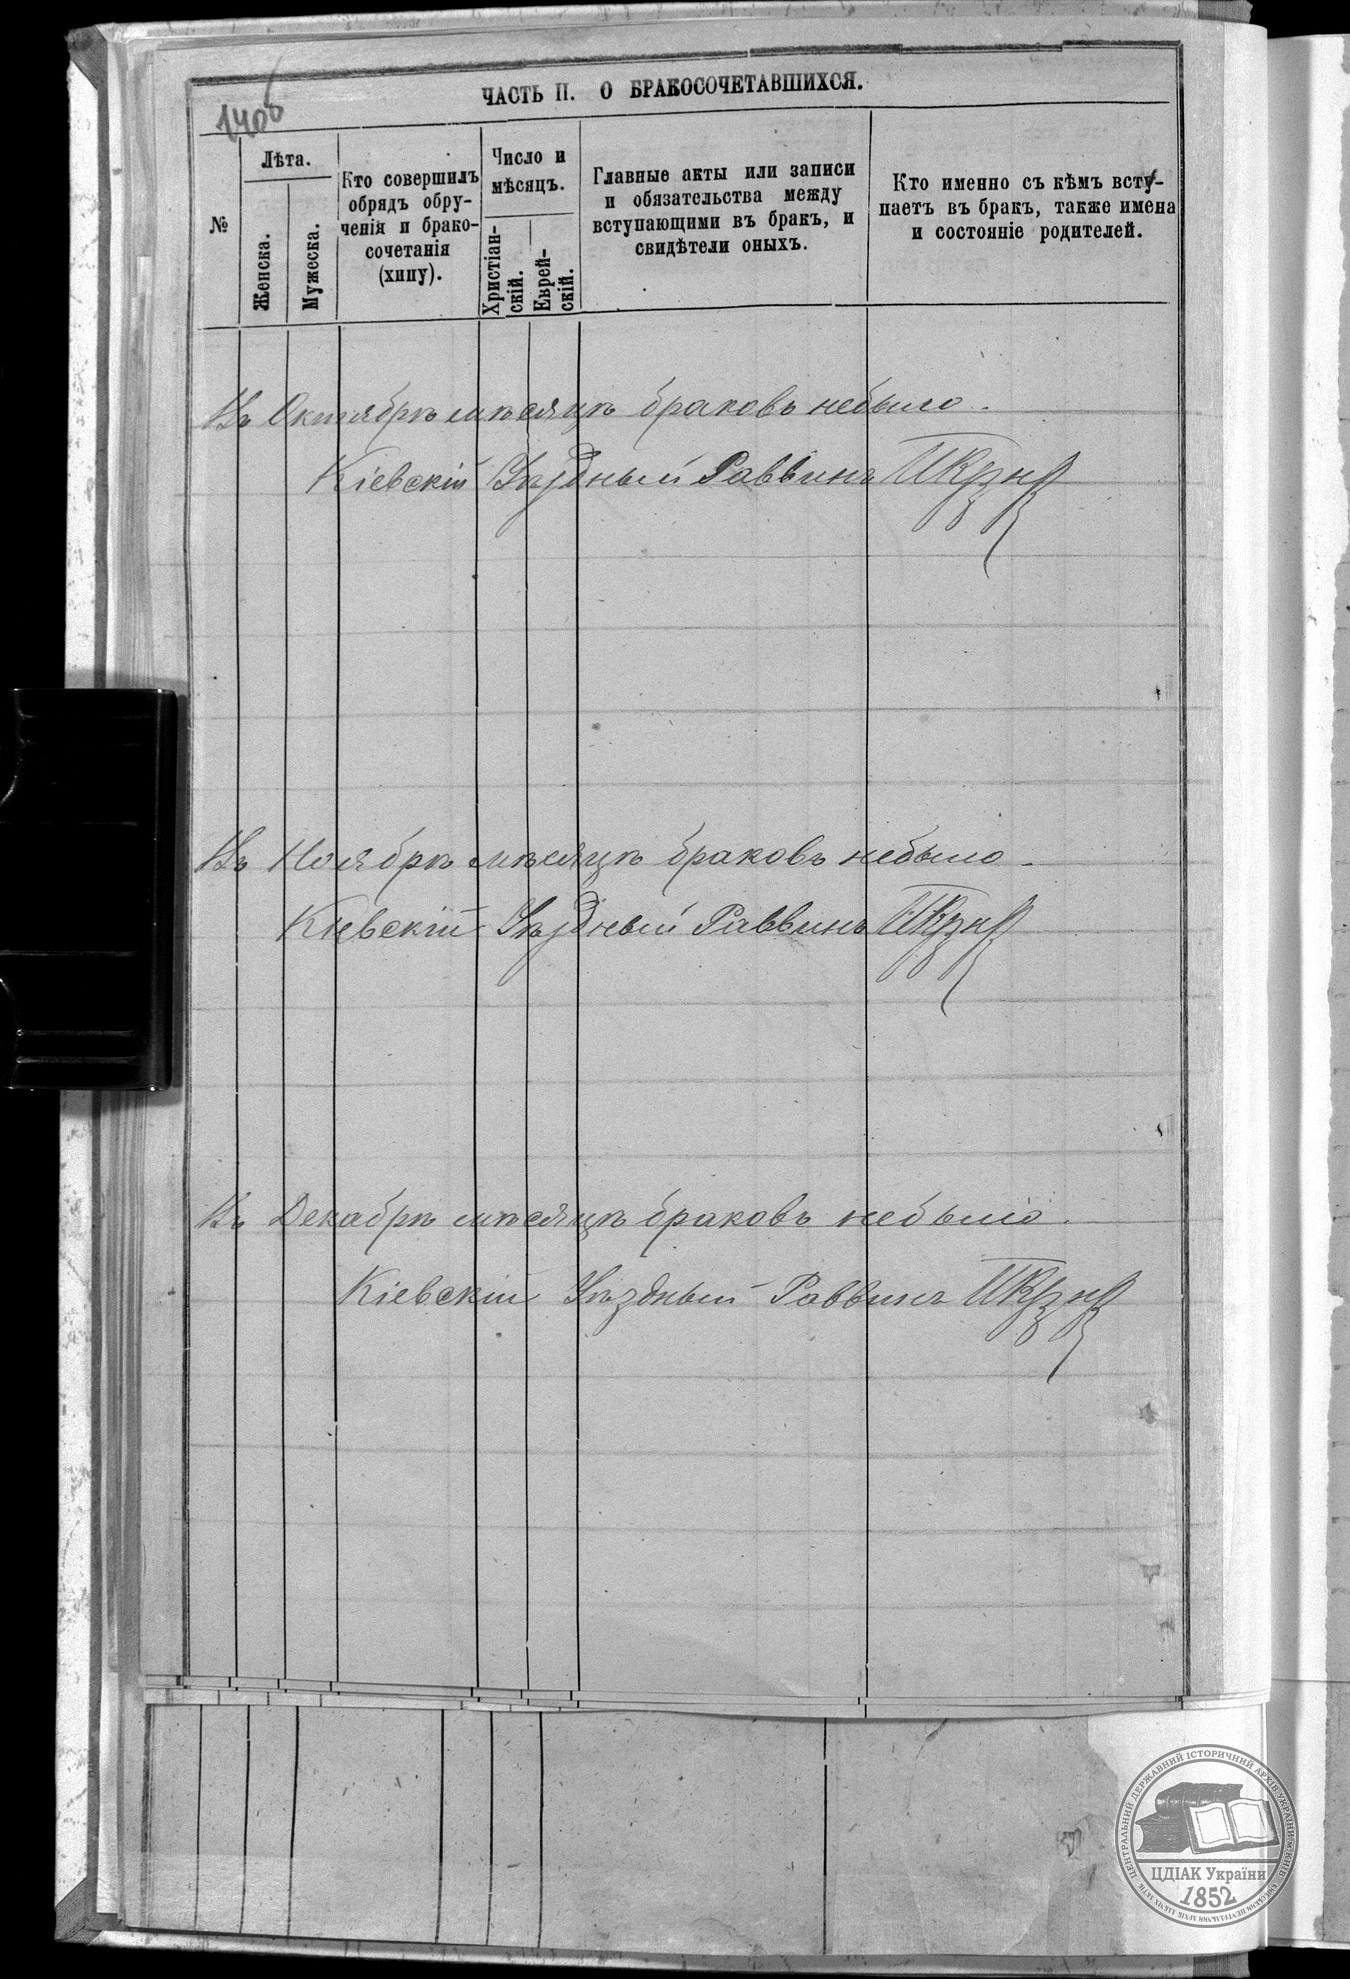 ЧАСТЬ II. О БРАКОСОЧЕТАВШИХСЯ.
1406
№
Лѣта.
Женска.
Мужеска.
Кто совершилъ
обрядъ обру-
ченія и брако-
сочетанія
(хипу).
Число и
мѣсяцъ.
Христіан-
скій.
Еврей-
скій.
Главные акты или записи
и обязательства между
вступающими въ бракъ, и
свидѣтели оныхъ.
Кто именно съ кѣмъ всту-
паетъ въ брак, также имена
и состояніе родителей.
Въ Октябрѣ мѣсяцѣ браковъ небыло.
Кіевскій Уѣздный Раввинъ
Въ Ноябрѣ мѣсяцѣ браковъ небыло
Кіевскій Уѣздный Раввинъ
Въ Декабрѣ мѣсяцѣ браковъ небыло.
Кіевскій Уѣздный Раввинъ
ЦЕНТРАЛЬНИЙ ДЕРЖАВНИЙ ІСТОРИЧНИЙ АРХІВ УКРАЇНИ М.КИЇВ
ЦДІАК України
1852